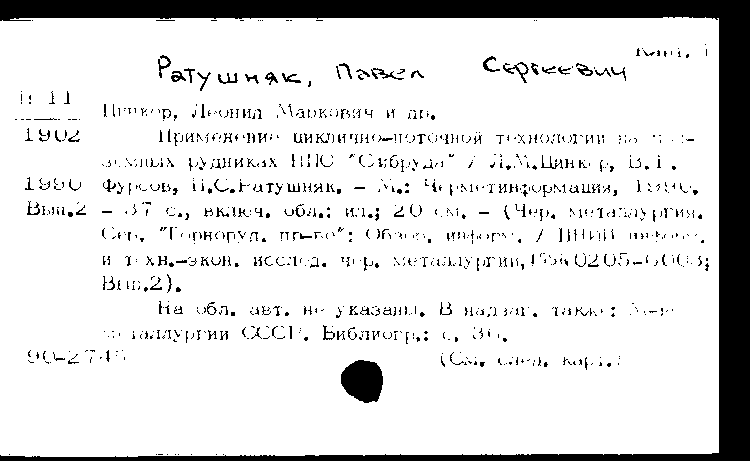 Карт. 1
Ратушняк, Павел Сергеевич
П 11
Цинкер, Леонид Маркович и др.
1902 Применение циклично-поточной технологии на
рудниках НПО "Сибруда" / Л.М.Цинкер, В.Г.
1990 Фурсов, П.С.Ратушняк. - М.: Черметинформация, 1990.
Вып.2 - 37 с., включ. обл.: ил.; 20 см. - (Чер. металлургия.
Сер. "Горноруд. пр-во": Обзор. информ. / ВНИИ информ.
и техн.-экон. исслед. чер. металлургии, 0205-6003;
Вып.2).
На обл. авт. не указаны. В надзаг. также: М-во
металлургии СССР. Библиогр.: с. 36.
90-2745 (См. след. карт.)